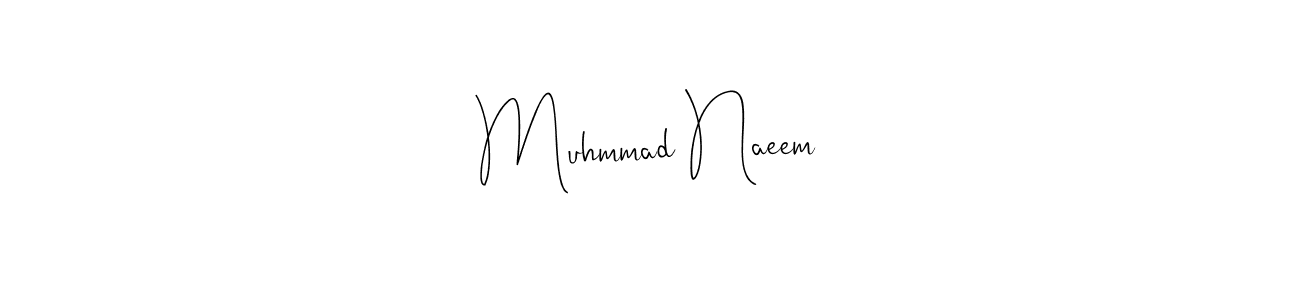 Muhmmad Naeem